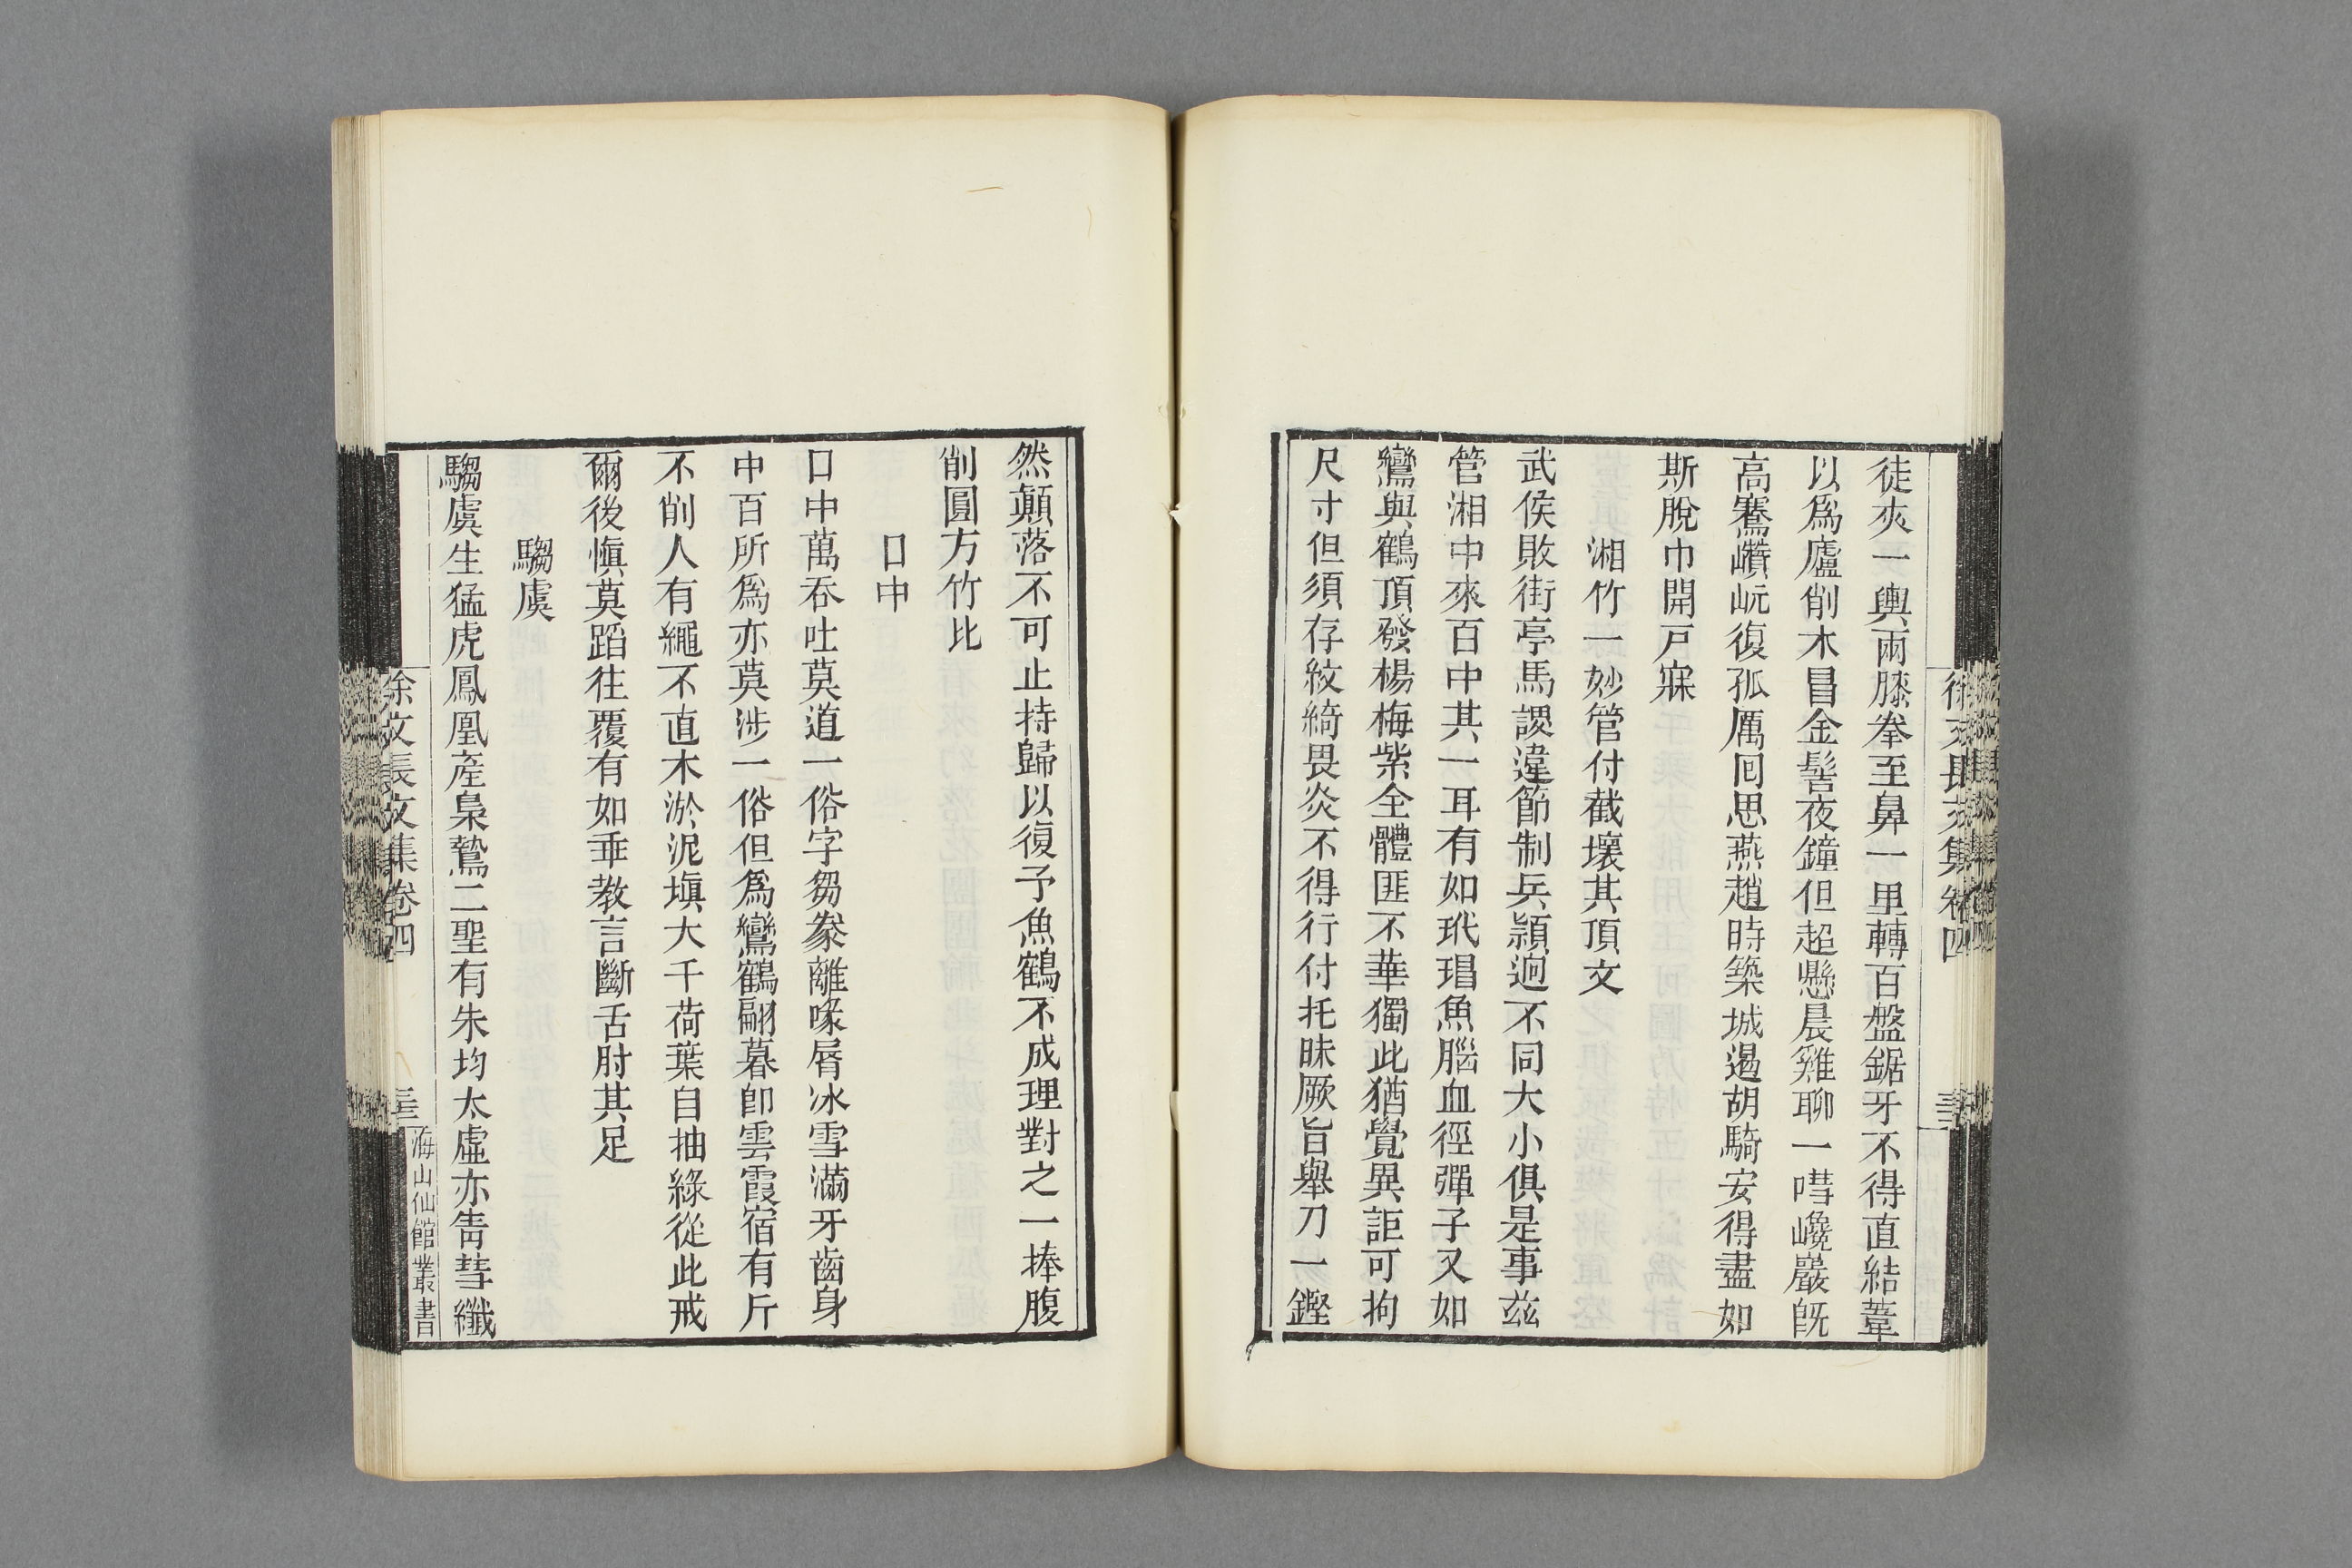 徒夾一輿兩膝拳至鼻一里轉百盤鋸牙不得直結葦
以爲廬削木冒金髻夜鐘但超懸晨雞聊一嘒巉巖旣
高騫巑岏復孤厲回思燕趙時築城遏胡騎安得盡如
斯脫巾開戸寐
湘竹一妙管付截壞其頂文
武侯敗街亭馬謖違節制兵潁逈不同大小俱是事兹
管湘中來百中其一耳有如玳瑁魚腦血徑彈子又如
鸞與鶴頂發楊梅紫全體匪不華獨此猶覺異詎可拘
尺寸但須存紋綺畏炎不得行付托昧厥旨舉刀一鏗
然顚落不可止持歸以復予魚鶴不成理對之一捧腹
削圓方竹比
口中
口中萬吞吐莫道一俗字芻豢離喙脣冰雪滿牙齒身
中百所爲亦莫涉一俗但爲鸞鶴翮暮卽雲霞宿有斤
不削人有繩不直木淤泥塡大千荷葉自抽綠從此戒
爾後愼莫蹈往覆有如垂教言斷舌肘其足
騶虞
騶虞生猛虎鳳凰產梟鷙二聖有朱均太虛亦眚彗纖
徐文長文集卷四
海山仙館叢書